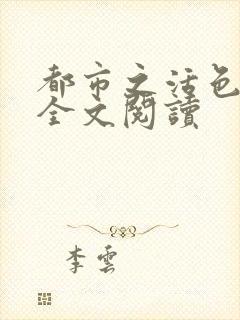 都市之活色
全文閱讀
李雲